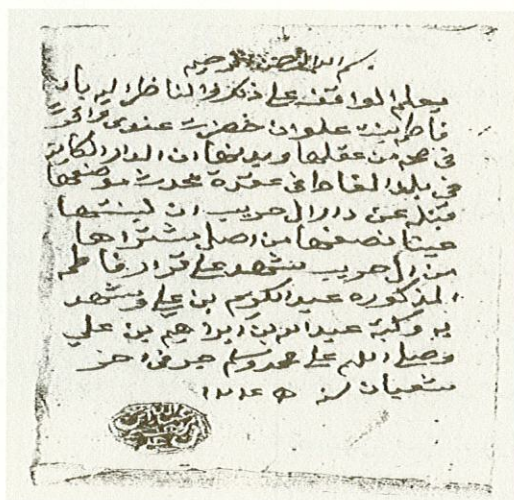 بسم الله الرحمن الرحيم
يعلم الواقف على ذكره والناظر اليه بان
فاطم بنت علوان حضرت عندي واقرت
في صحة من عقلها وبدنها ان الدار الكائنة
في بلد القاط في عقدة محدث موضعها
قبله عن دار ال حريب ان لبنتها
عيثا نصفها من اصل مشتراها
من ال حريب شهد على اقرار فاطم
المذكوره عبد الكريم بن علي وشهد
به وكتبه عبد الله بن ابراهيم بن علي
وصلى الله على محمد وسلم جرى في اخر
شعبان سنة